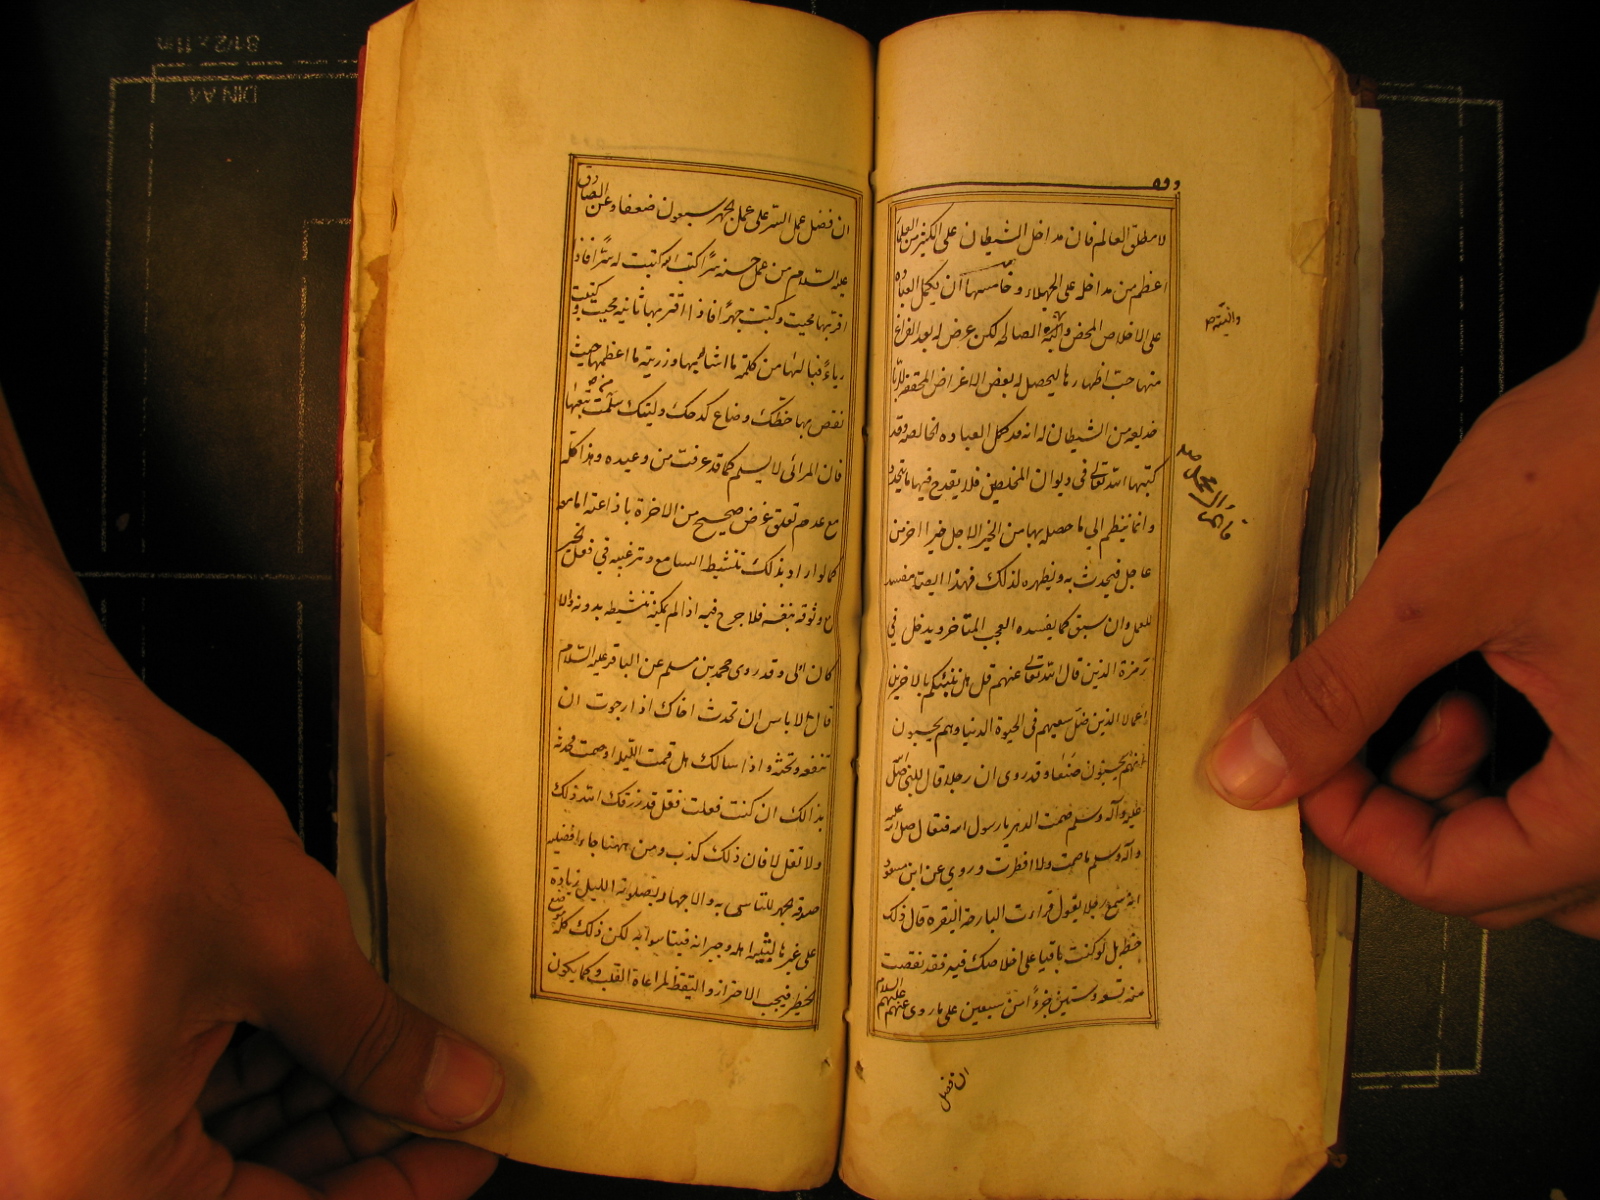 لا مطلق العالم فان مداخل الشيطان على الكثير من العلماء
اعظم من مداخله على الجهلاء و خامسها ان يكمل العباده
على الاخلاص المحض والنية الصالحه لكن عرض له بعد الفراغ
منها حب اظهارها ليحصل له بعض الاغراض المحققه للريا
خديعه من الشيطان له انه قد كمل العباده الخالصه وقد
كتبها الله تعالى في ديوان المخلصين فلا يقدح فيها ما يتجدد
وانما ينظم الي ما حصل بها من الخير الاجل خيرا اخر من
عاجل فيحدث به ويظهره لذلك فهذا ايضا مفسد
للعمل وان سبق كما يفسده العجب المتاخر ويدخل في
زمرة الذين قال الله تعالى عنهم قل هل ننبئكم بالاخرين
اعمالا الذين ضل سعيهم في الحيوة الدنيا وهم يحسبون
انهم يحسنون صنعا وقد روى ان رجلا قال للنبي صلى الله
عليه وآله وسلم صمت الدهر يا رسول الله فقال صلى الله عليه
وآله وسلم ما صمت ولا افطرت و روي عن ابن مسعود
انه سمع رجلا يقول قراءت البارحة البقره قال ذلك
حظه بل لو كنت باقيا على اخلاصك فيه فقد نقصت
منه تسعه وستين جزءً امن سبعين على ما روى عنهم عليهم السلام
ان فضل
والنيته
ان فضل عمل السر على عمل الجهر سبعون ضعفا وعن الصادق
عليه السلام من عمل حسنه سرًا كتبت له سرًا فاذا
اقر بها محيت وكتبت جهرًا فاذا اقر بها ثانيه محيت وكتبت
رياءً فيا لها من كلمة ما اشامها ورزية ما اعظمها حيث
نقص بها حظك وضاع كدحك وليتك سلمت من تبعتها
فان المرائى لا يسلم كما قد عرفت من وعيده وهذا كله
مع عدم تعلق غرض صحيح من الاخرة باذاعته اما معه
كما لو اراد بذلك تنشيط السامع وترغيبه في فعل الخير
مع وثوقه بنفسه فلا حرج فيه اذا لم يمكنه تنشيطه بدونه والا
كان اولى وقد روى محمد بن مسلم عن الباقر عليه السلام
قال لا باس ان تحدث اخاك اذا رجوت ان
تنفعه وتحثه و اذا سالك هل قمت الليلة او صمت فحدثه
بذالك ان كنت فعلت فقل قد رزقك الله ذلك
ولا تقل لا فان ذلك كذب ومن ههنا جاء افضليه
صدقه الجهر للتاسى به والاجهار بصلوة الليل زيادة
على غيرها لتنبيه اهله وجيرانه فيتاسوا به لكن ذلك كله موضع
خطر فيجب الاحتراز و التيقظ لمراعاة القلب وكما يكون